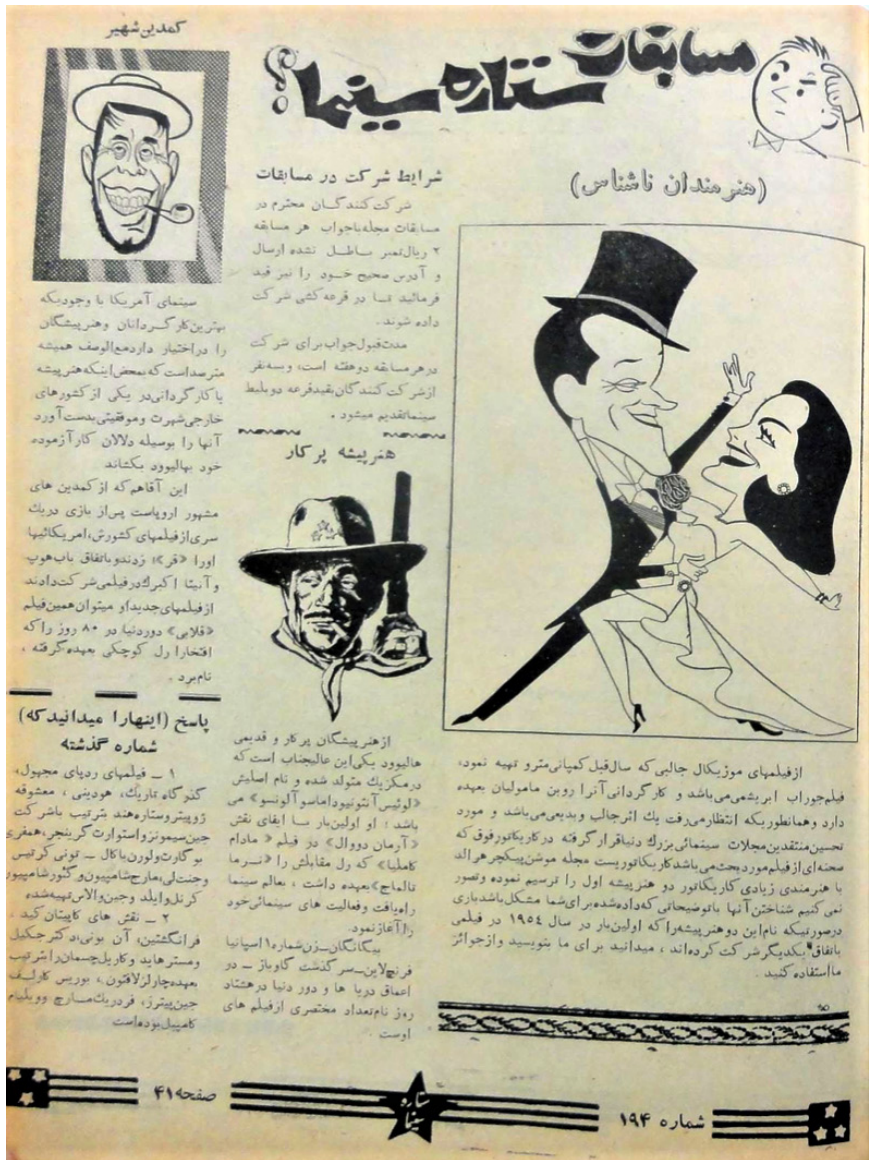 مسابقات
ستاره سینما؟
(هنرمندان ناشناس)
از فیلمهای موزیکال جالبی که سال قبل کمپانی مترو تهیه نمود،
فیلم جوراب ابریشمی می‌باشد و کارگردانی آنرا روبن مامولیان بعهده
دارد و همانطوریکه انتظار میرفت یك اثر جالب و بدیعی می‌باشد و مورد
تحسین منتقدین مجلات سینمائی بزرك دنیا قرار گرفته در کاریکاتور فوق که
صحنه‌ای از فیلم مورد بحث می‌باشد کاریکاتوریست مجله موشن پیکچر هرالد
با هنرمندی زیادی کاریکاتور دو هنرپیشه اول را ترسیم نموده و تصور
نمی کنیم شناختن آنها با توضیحاتی که داده شده برای شما مشکل باشد باری
درصورتیکه نام این دو هنرپیشه را که اولین بار در سال ۱۹۵۴ در فیلمی
باتفاق یکدیگر شرکت کرده‌اند ، میدانید برای ما بنویسید و از جوائز
ما استفاده کنید .
شرایط شرکت در مسابقات
شرکت کنندگان محترم در
مسابقات مجله با جواب هر مسابقه
۲ ریال تمبر باطل نشده ارسال
و آدرس صحیح خود را نیز قید
فرمائید تا در قرعه کشی شرکت
داده شوند .
مدت قبول جواب برای شرکت
در هر مسابقه دو هفته است ، و بسه نفر
از شرکت کنندگان بقید قرعه دو بلیط
سینما تقدیم میشود .
هنرپیشه پر کار
از هنرپیشگان پر کار و قدیمی
هالیوود یکی این عالیجناب است که
در مکزیك متولد شده و نام اصلیش
«لوئیس آنتونیو داماسو آلونسو» می
باشد ؛ او اولین بار با ایفای نقش
«آرمان دووال» در فیلم «مادام
کاملیا» که رل مقابلش را «نرما
تالماج» بعهده داشت ، بعالم سینما
راه یافت و فعالیت های سینمائی خود
را آغاز نمود .
بیگانگان ـ زن شماره ۱ اسپانیا
فرنچ لاین ـ سرگذشت گاوباز ـ در
اعماق دریا ها و دور دنیا در هشتاد
روز نام تعداد مختصری از فیلم های
اوست .
کمدین شهیر
سینمای آمریکا با وجودیکه
بهترین کارگردانان و هنرپیشگان
را در اختیار دارد مع‌الوصف همیشه
مترصد است که بمحض اینکه هنرپیشه
یا کارگردانی در یکی از کشورهای
خارجی شهرت و موفقیتی بدست آورد
آنها را بوسیله دلالان کار آزموده
خود بهالیوود بکشاند
این آقا هم که از کمدین های
مشهور اروپاست پس از بازی در یك
سری از فیلمهای کشورش، امریکائیها
اورا «قر» زدند و باتفاق باب هوپ
و آنیتا اکبرك در فیلمی شرکت دادند
از فیلمهای جدید او میتوان همین فیلم
«قلابی» دور دنیا در ۸۰ روز را که
افتخارا رل کوچکی بعهده گرفته ،
نام برد .
پاسخ (اینهارا میدانید که)
شماره گذشته
۱ ـ فیلمهای ردپای مجهول،
گذرگاه تاریك، هودینی ، معشوقه
ژوپیتر و ستاره هند بترتیب باشرکت
جین سیمونز و استوارت گرینجر، همفری
بوگارت و لورن باکال ـ تونی کرتیس
وجنت لی، مارج شامپیون و گئور شامپیون
کرنل وایلد و جین والاس تهیه شده
۲ ـ نقش های کاپیتان کید ،
فرانگشتین، آن بونی، دکتر جکیل
و مستر هاید و کاریل چسمان را بترتیب
بعهده چارلز لافتون ، بوریس کارلف
جین پیترز، فردریك مارچ و ویلیام
کامپبل بوده است
صفحه ۴۱
ستاره
سینما
شماره ۱۹۴